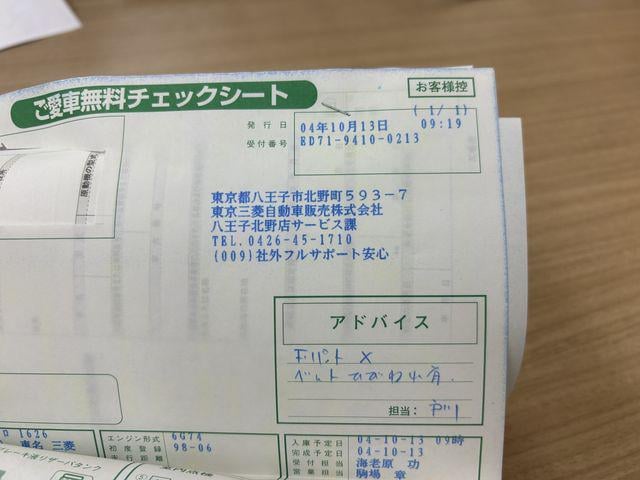 お客様控
ご愛車無料チェックシート
( 1/ 1)
発行日 04年10月13日 09:19
受付番号 ED71-9410-0213
東京都八王子市北野町593-7
東京三菱自動車販売株式会社
八王子北野店サービス課
TEL.0426-45-1710
(009)社外フルサポート安心
アドバイス
ベルトひびわれ有.
担当:
1626
車名 三菱
エンジン形式 6G74
初度登録 98-06
走行距離
入庫予定日 04-10-13 09時
完成予定日 04-10-13
受付担当 海老原 功
営業担当 駒場 章